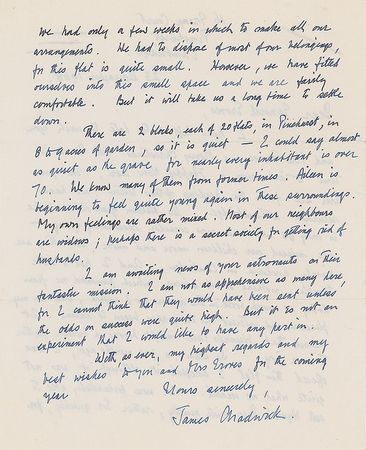 We had only a few weeks in which to make all our
arrangements. We had to dispose of most of our belongings,
for this flat is quite small. However, we have fitted
ourselves into this small space and we are fairly
comfortable. But it will take us a long time to settle
down.
There are 2 blocks, each of 20 flats, in Pinehurst, in
8 to 9 acres of garden, so it is quiet — I could say almost
as quiet as the grave, for nearly every inhabitant is over
70. We know many of them from former times. Aileen is
beginning to feel quite young again in these surroundings.
My own feelings are rather mixed. Most of our neighbours
are widows; perhaps there is a secret society for getting rid of
husbands.
I am awaiting news of your astronauts on their
fantastic mission. I am not as apprehensive as many here,
for I cannot think that they would have been sent unless
the odds on success were quite high. But it is not an
experiment that I would like to have any part in.
With, as ever, my highest regards and my
best wishes to you and Mrs Groves for the coming
year
Yours sincerely,
James Chadwick.